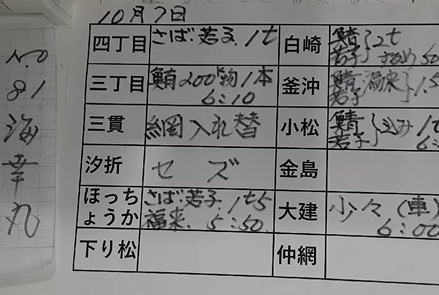 No
81
海
幸
丸
10月7日
四丁目 さば・若子. 1t
白崎 鯖 若子 }2t
三丁目 鮪200kg 1本
6:10
釜沖 鯖 若子 福来
三貫 網入れ替
小松 鯖 若子 }込み 1t
汐折 セズ
金島
ほっちょうか さば・若子. 1t5
福来. 5:50.
大建 少々(車)
6:00
下り松
仲網